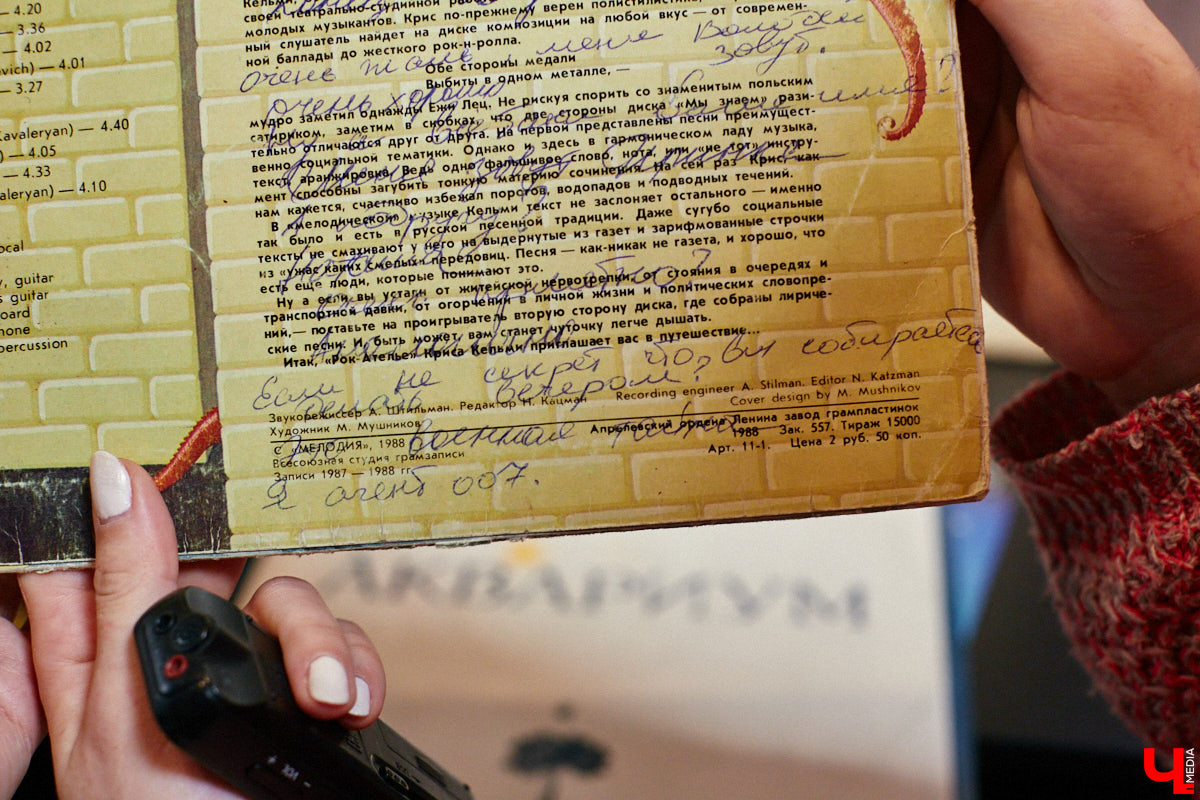 — 4.20
— 3.36
— 4.02
vich) — 4.01
— 3.27
Kavaleryan) — 4.40
) — 4.05
— 4.33
aleryan) — 4.10
ocal
y, guitar
s guitar
oard
hone
percussion
своей театрально-студийной
молодых музыкантов. Крис по-прежнему верен полистилистик
ный слушатель найдет на диске композиции на любой вкус — от современ-
ной баллады до жесткого рок-н-ролла.
очень жаль меня Володей
зовут.
Обе стороны медали
Выбиты в одном металле, —
очень хорошо
мудро заметил однажды Ежи Лец. Не рискуя спорить со знаменитым польским
сатириком, заметим в скобках, что две стороны диска «Мы знаем» рази-
тельно отличаются друг от друга. На первой представлены песни преимущест-
венно социальной тематики. Однако и здесь в гармоническом ладу музыка,
текст, аранжировка. Ведь одно фальшивое слово, нота, или «не тот» инстру-
мент способны загубить тонкую материю сочинения. На сей раз Крис, как
нам кажется, счастливо избежал порогов, водопадов и подводных течений.
В «мелодической» музыке Кельми текст не заслоняет остального — именно
так было и есть в русской песенной традиции. Даже сугубо социальные
тексты не смахивают у него на выдернутые из газет и зарифмованные строчки
из «ужас каких смелых» передовиц. Песня — как-никак не газета, и хорошо, что
есть еще люди, которые понимают это.
Ну а если вы устали от житейской нервотрепки, от стояния в очередях и
транспортной давки, от огорчений в личной жизни и политических словопре-
ний,— поставьте на проигрыватель вторую сторону диска, где собраны лириче-
ские песни. И, быть может, вам станет чуточку легче дышать.
Итак, «Рок-Ателье» Криса Кельми приглашает вас в путешествие...
Если не секрет что вы собираетесь
делать вечером?
Звукорежиссер А. Штильман. Редактор Н. Кацман
Recording engineer A. Stilman. Editor N. Katzman
Художник М. Мушников
Cover design by M. Mushnikov
Это военная тайна
© «МЕЛОДИЯ», 1988
Апрелевский ордена Ленина завод грампластинок
Всесоюзная студия грамзаписи
1988 — Зак. 557. Тираж 15000
Записи 1987 — 1988 гг.
Арт. 11-1. Цена 2 руб. 50 коп.
Я агент 007.
АКВАРИУМ
VOL
Ч MEDIA